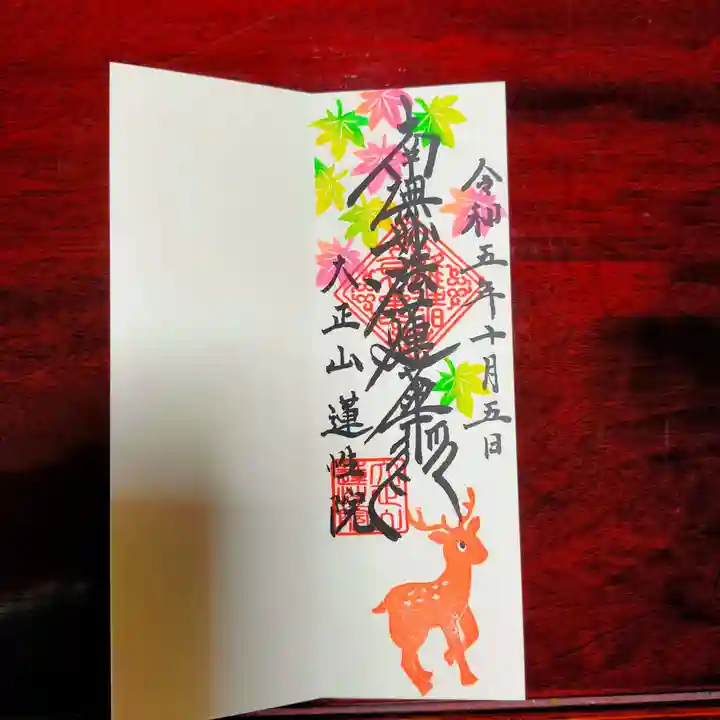 令和五年十月五日
南無妙法蓮華経
大正山蓮性院